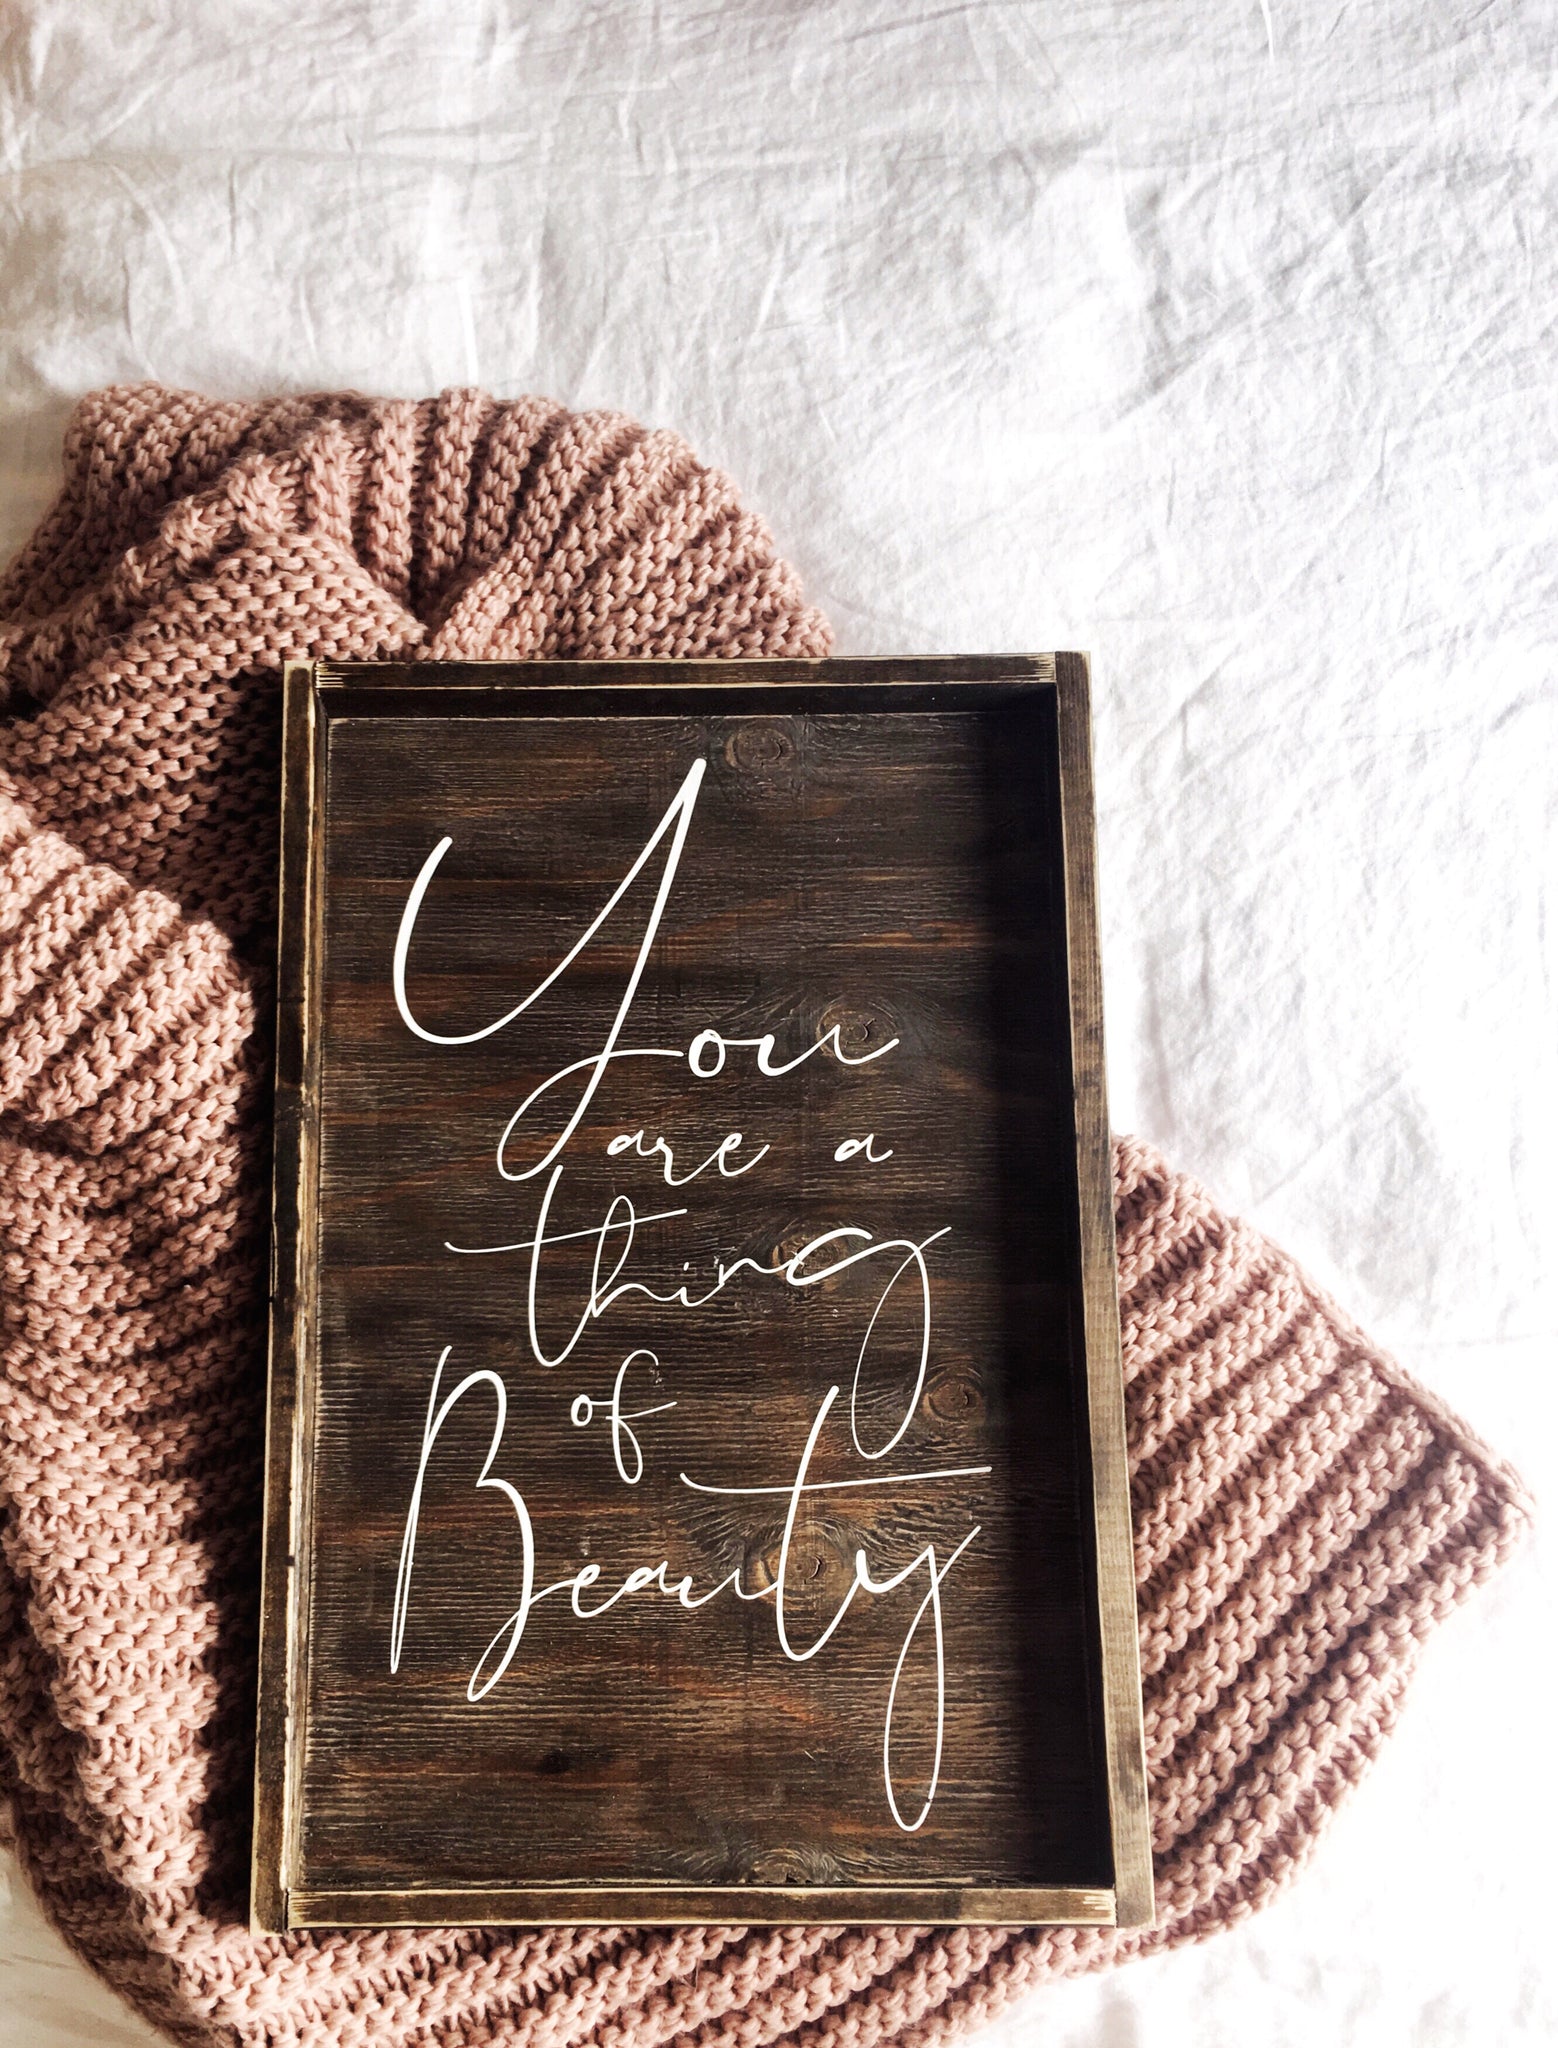 You
are a
thing
of
Beauty